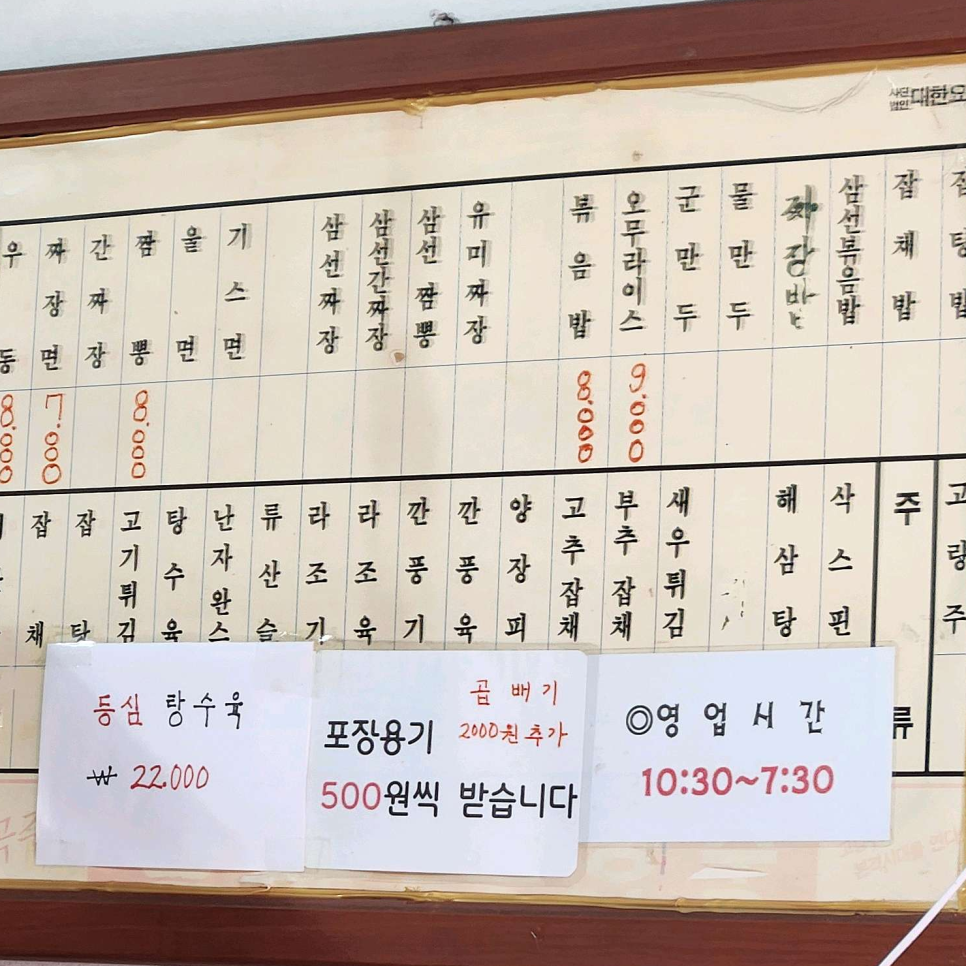 사단
법인 대한요
우동
짜장면
간짜장
짬뽕
울면
기스면
삼선짜장
삼선간짜장
삼선짬뽕
유미짜장
볶음밥
오무라이스
군만두
물만두
짜장밥
삼선볶음밥
잡채밥
잡탕밥
8.000
7.000
8.000
8.000
9.000
잡채
잡탕
고기튀김
탕수육
난자완스
류산슬
라조기
라조육
깐풍기
깐풍육
양장피
고추잡채
부추잡채
새우튀김
해삼탕
삭스핀
주류
고량주
등심 탕수육
₩ 22.000
곱배기
2000원 추가
포장용기
500원씩 받습니다
◎영업시간
10:30~7:30